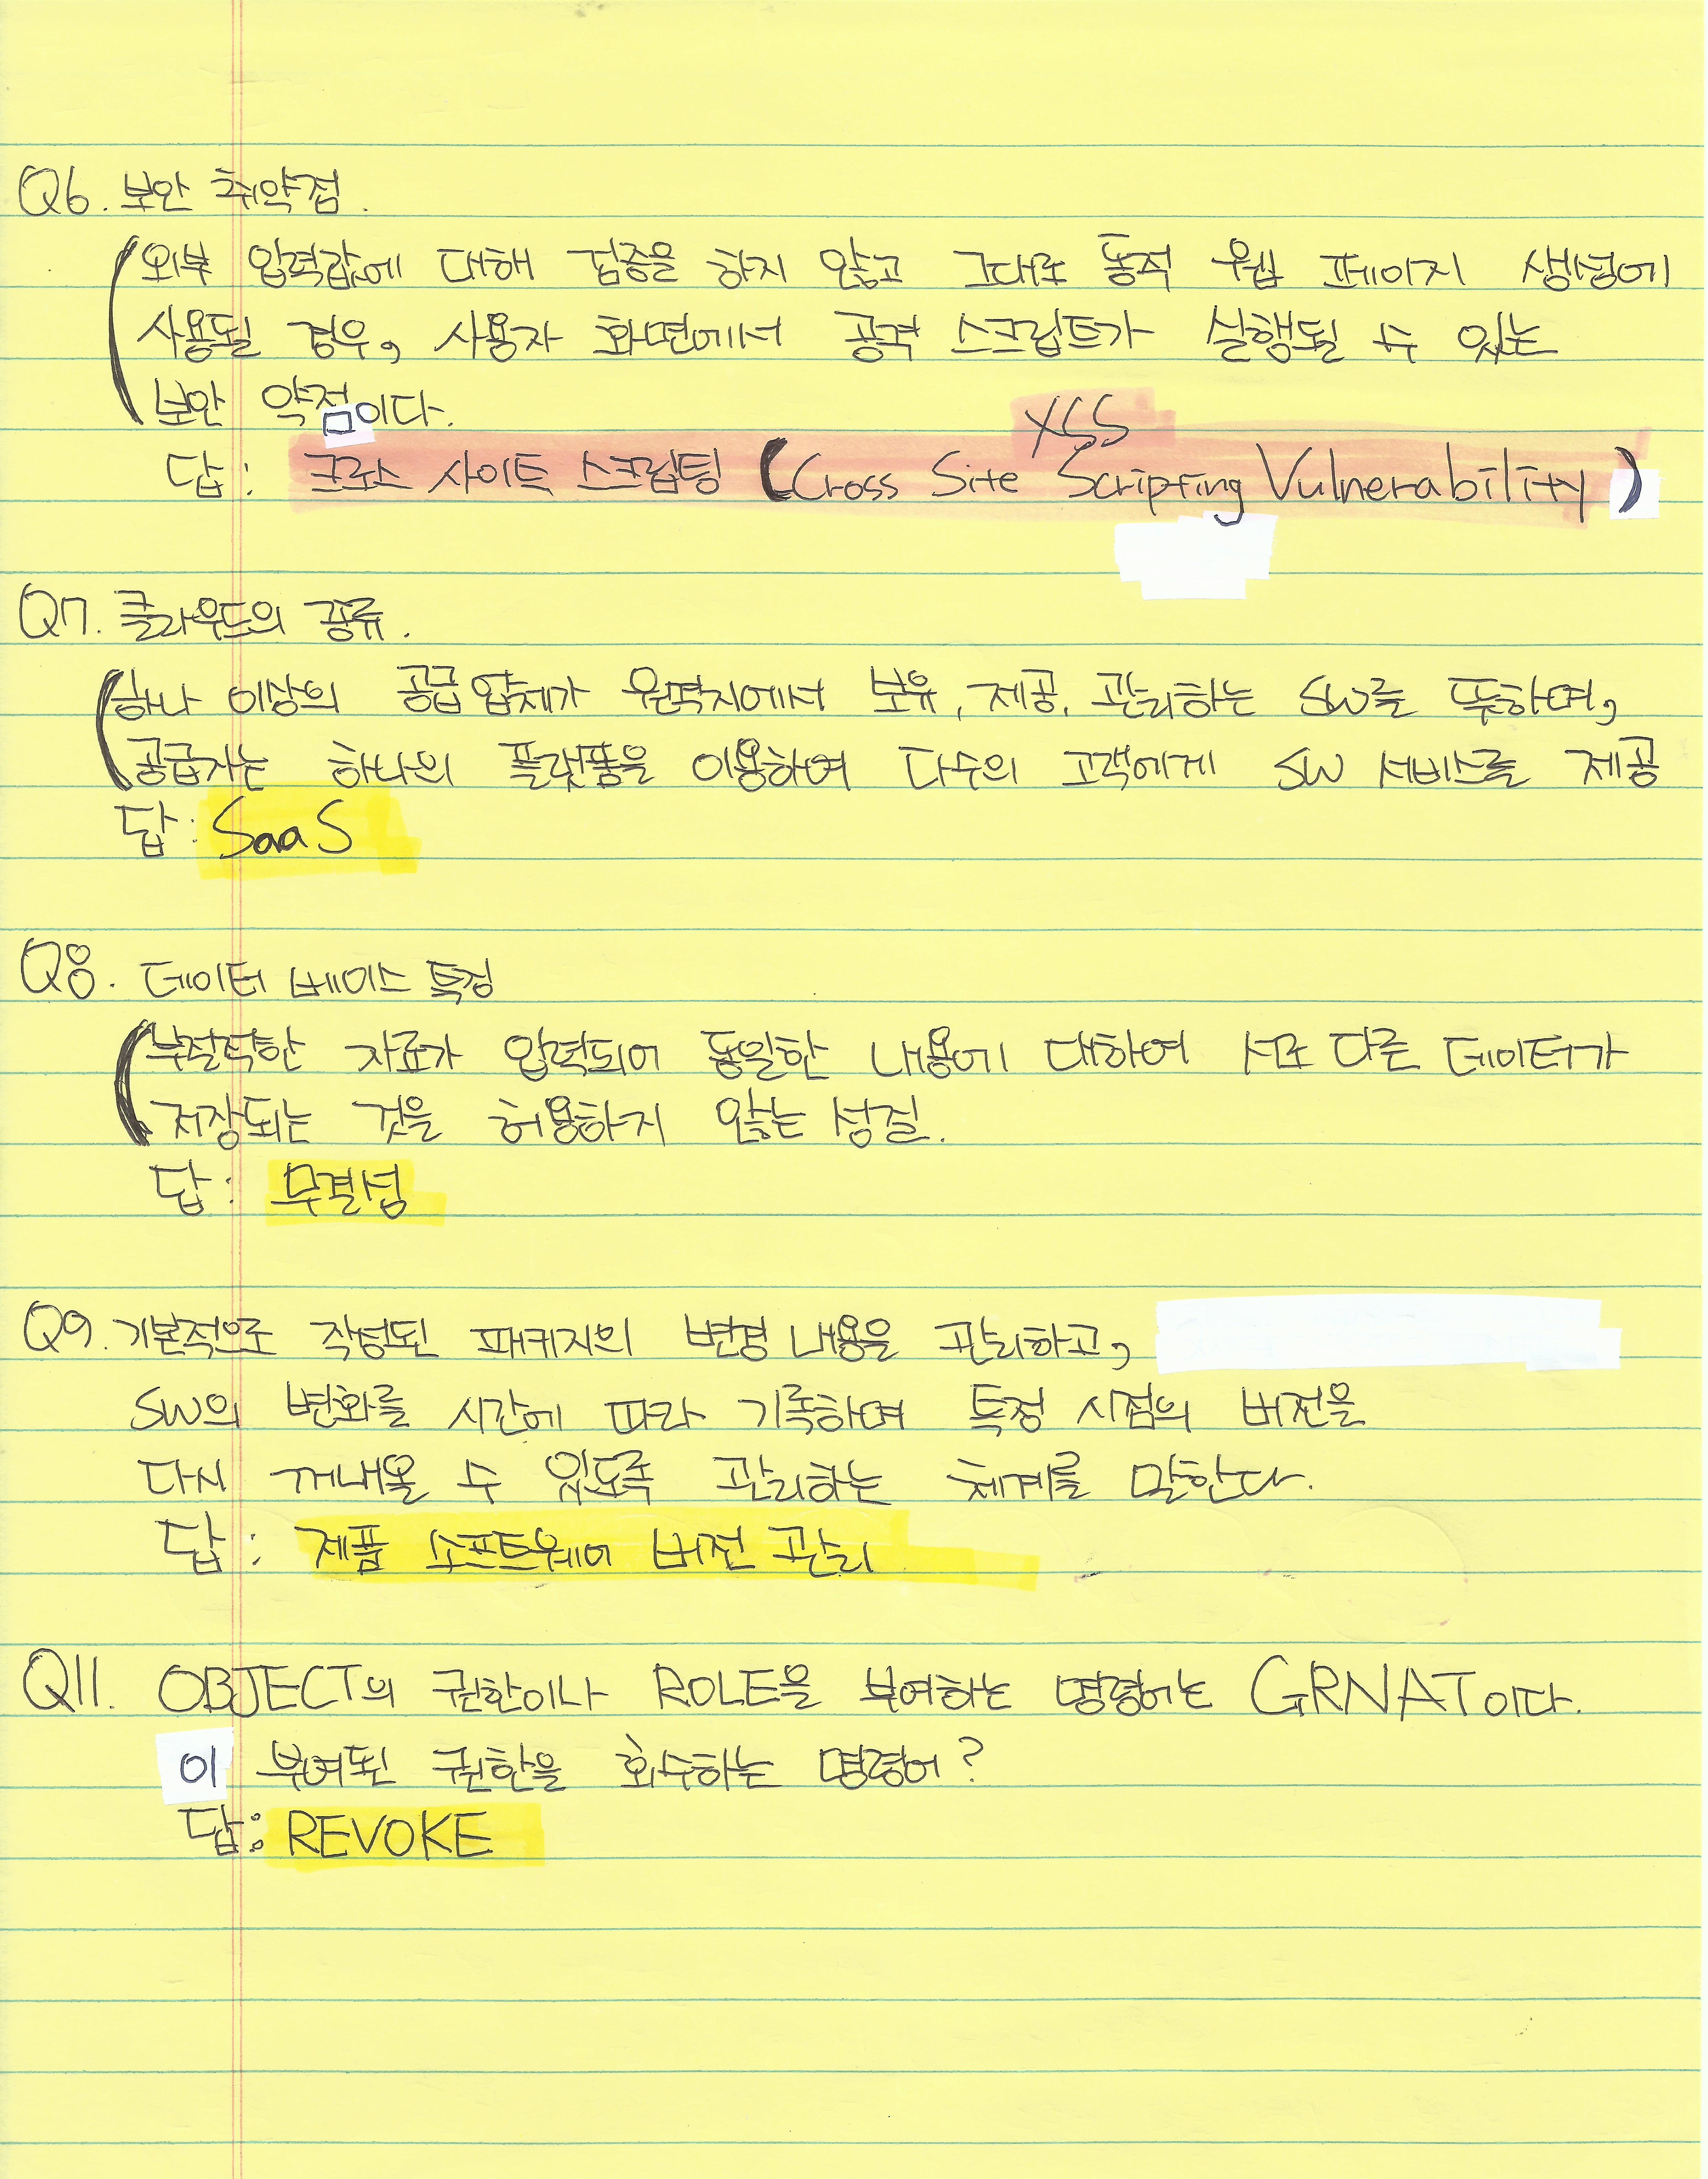 Q6. 보안 취약점.
외부 입력값에 대해 검증을 하지 않고 그대로 동적 웹 페이지 생성에
사용될 경우, 사용자 화면에서 공격 스크립트가 실행될 수 있는
보안 약점이다.
XSS
답: 크로스 사이트 스크립팅 (Cross Site Scripting Vulnerability)
Q7. 클라우드의 종류.
하나 이상의 공급 업체가 원격지에서 보유, 제공, 관리하는 SW를 뜻하며,
공급자는 하나의 플랫폼을 이용하여 다수의 고객에게 SW 서비스를 제공
답: SaaS
Q8. 데이터 베이스 특징
부적합한 자료가 입력되어 동일한 내용에 대하여 서로 다른 데이터가
저장되는 것을 허용하지 않는 성질.
답: 무결성
Q9. 기본적으로 작성된 패키지의 변경 내용을 관리하고,
SW의 변화를 시간에 따라 기록하며 특정 시점의 버전을
다시 꺼내올 수 있도록 관리하는 체계를 말한다.
답: 제품 소프트웨어 버전 관리
Q11. OBJECT의 권한이나 ROLE을 부여하는 명령어는 GRNAT이다.
이 부여된 권한을 회수하는 명령어?
답: REVOKE